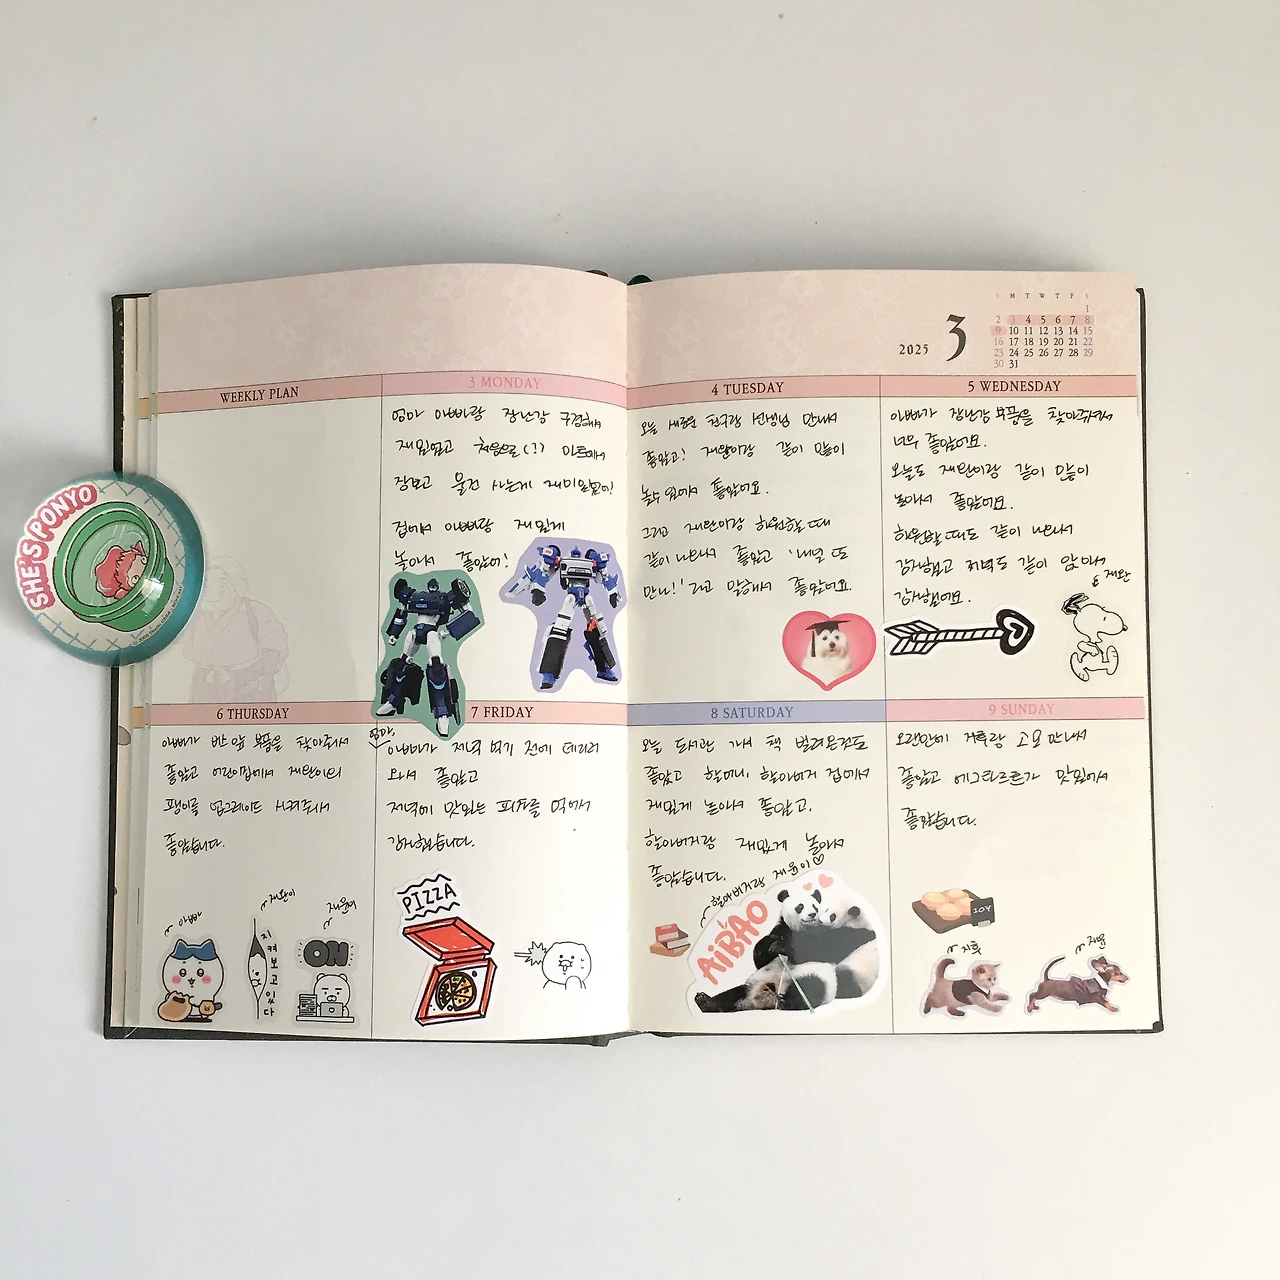 2025
3
S M T W T F S
1
2 3 4 5 6 7 8
9 10 11 12 13 14 15
16 17 18 19 20 21 22
23 24 25 26 27 28 29
30 31
WEEKLY PLAN
3 MONDAY
엄마 아빠랑 장난감 구경해서
재밌었고 처음으로(?) 마트에서
장보고 물건 사는게 재미있었어!
집에서 아빠랑 재밌게
놀아서 좋았어!
4 TUESDAY
오늘 새로운 친구랑 선생님 만나서
좋았고! 재완이랑 같이 많이
놀수 있어서 좋았어요.
그리고 재완이랑 하원할 때
같이 나와서 좋았고 '내일 또
만나!' 라고 말해서 좋았어요.
5 WEDNESDAY
아빠가 장난감 부품을 찾아주셔서
너무 좋았어요.
오늘도 재완이랑 같이 많이
놀아서 좋았어요.
하원할 때도 같이 나와서
감사했고 저녁도 같이 앉아서
감사했어요.
재완
SHE'S PONYO
6 THURSDAY
아빠가 부품을 찾아주셔서
좋았고 어린이집에서 재완이의
팽이를 업그레이드 시켜주셔서
좋았습니다.
아빠
재완이
재윤이
지켜보고있다
ON
7 FRIDAY
엄마,
아빠가 저녁 먹기 전에 데리러
와서 좋았고
저녁에 맛있는 피자를 먹어서
감사했습니다.
PIZZA
8 SATURDAY
오늘 도서관 가서 책 빌려온것도
좋았고 할머니, 할아버지 집에서
재밌게 놀아서 좋았고.
할아버지랑 재밌게 놀아서
좋았습니다.
할아버지랑 재윤이♡
AiBAO
9 SUNDAY
오랜만에 지후랑 고모 만나서
좋았고 에그타르트가 맛있어서
좋았습니다.
JOY
지후
재윤